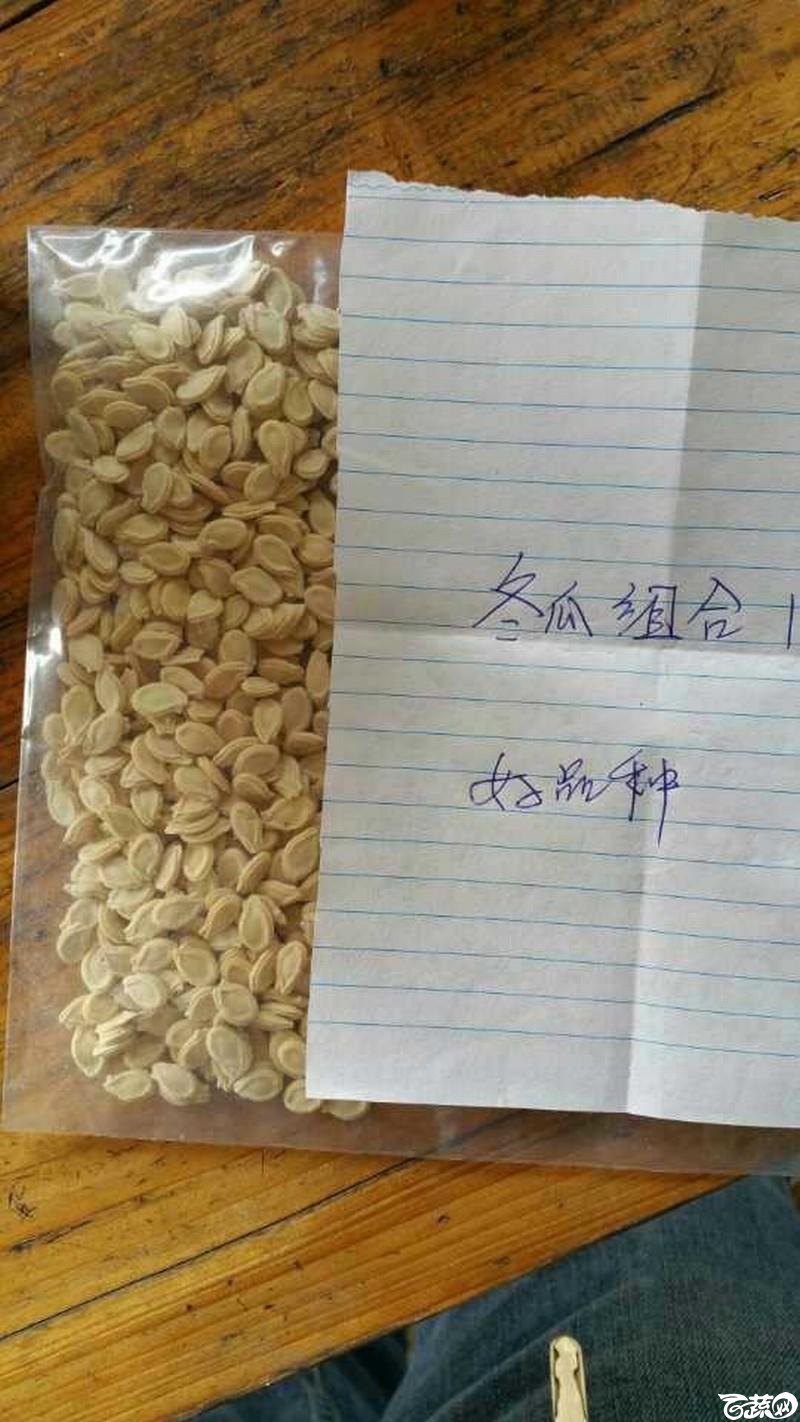 冬瓜组合1
好品种
百蔬网